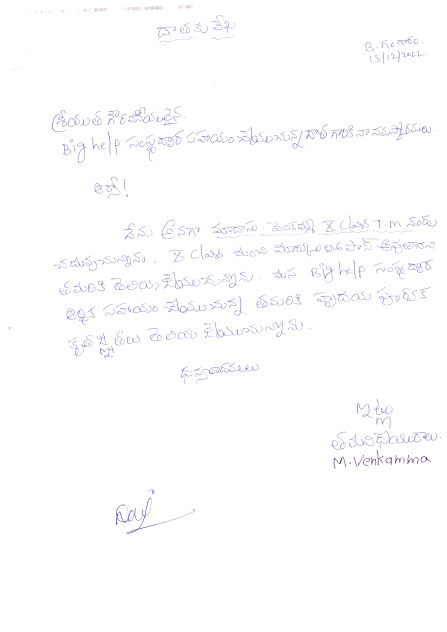 దాతకు లేఖ
B. గంగారం.
15/12/2022
శ్రీయుత గౌరవనీయులైన.
Big help సంస్థ ద్వార సహాయం చేయుచున్న దాత గారికి నా నమస్కారములు.
ఆర్యా!
నేను అనగా మాదాసు. వెంకమ్మ X Class T.M నందు
చదువుచున్నాను. X Class మంచి మార్కులతో పాస్
తమరికి తెలియ చేయుచున్నాను. మన Big help సంస్థ ద్వార
ఆర్థిక సహాయం చేయుచున్న తమరికి హృదయ పూర్వక
కృతజ్ఞతలు తెలియ చేయుచున్నాను.
ధన్యవాదములు
ఇట్లు
తమ విధేయురాలు.
M. Venkamma